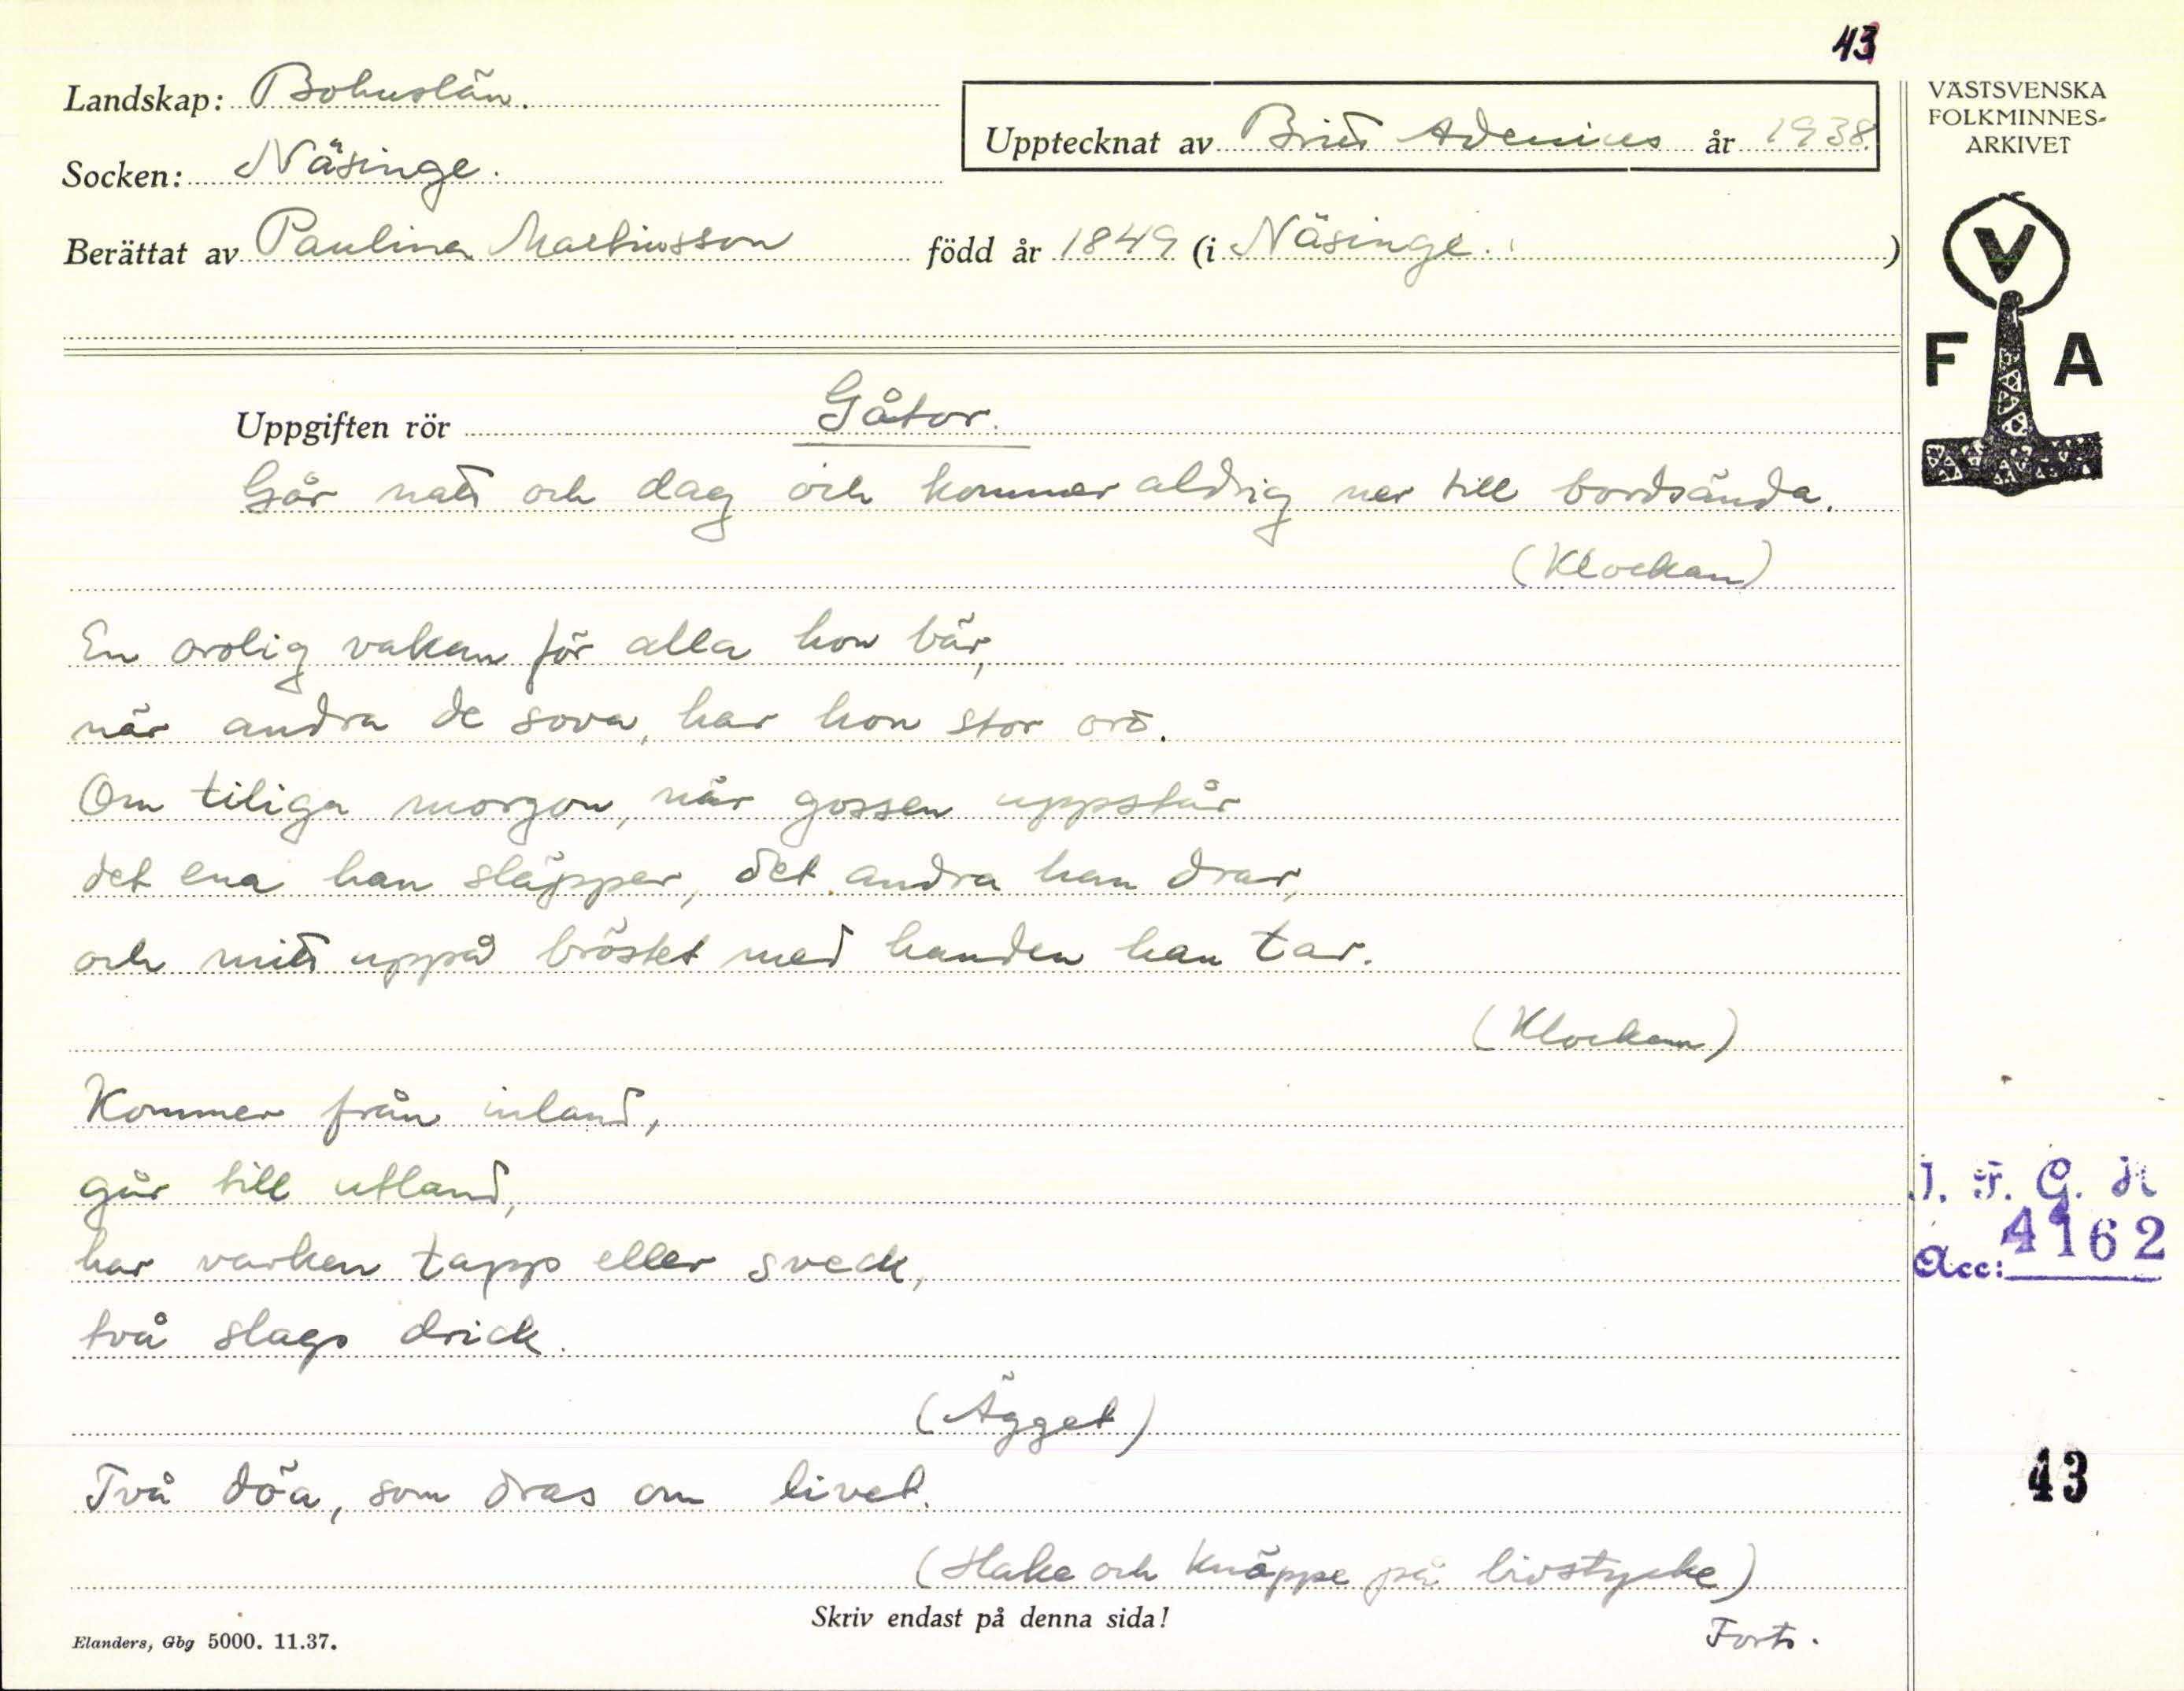 43
Landskap: Bohuslän.
Upptecknat av Britt Adenius år 1938.
VÄSTSVENSKA
FOLKMINNES-
ARKIVET
Socken: Näsinge.
Berättat av Paulina Martinsson född år 1849 (i Näsinge. )
V
F A
Uppgiften rör Gåtor.
Går natt och dag och kommer aldrig ner till bordsända.
(Klockan)
En orolig vakan för alla hon bär,
när andra de sova, har hon stor oro.
Om tiliga morgon, när gossen uppstår
det ena han släpper, det andra han drar,
och mitt uppå bröstet med handen han tar.
(Klockan)
Kommer från inland,
går till utland,
har varken tapp eller sveck,
två slags drick.
(Ägget)
Två döa, som dras om livet.
(Hake och knäppe på livstycke)
Forts.
I. F. G. H
Acc: 4162
43
Skriv endast på denna sida!
Elanders, Gbg 5000. 11.37.